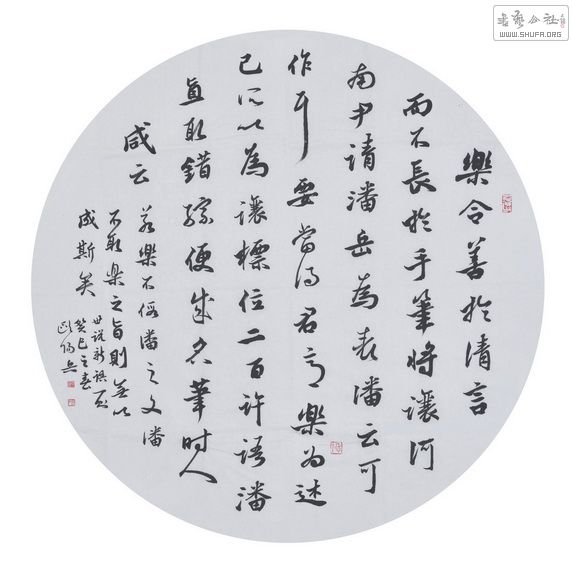 樂令善於清言
而不長於手筆將讓河
南尹請潘岳為表潘云可
作耳要當得君意樂为述
己所以為讓標位二百許語潘
直取錯綜便成名筆时人
咸云
若樂不假潘之文潘
不取樂之旨則無以
成斯矣
世说新語
癸巳之春
書藝公社
WWW.SHUFA.ORG